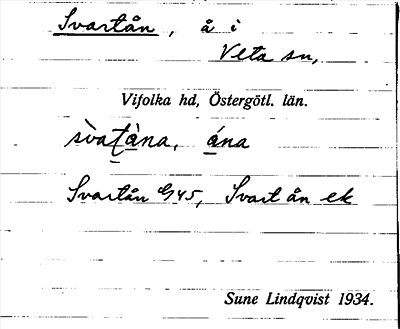 Svartån, å i
Veta sn,
Vifolka hd, Östergötl. län.
svatåna, åna
Svartån G45, Svart ån ek
Sune Lindqvist 1934.